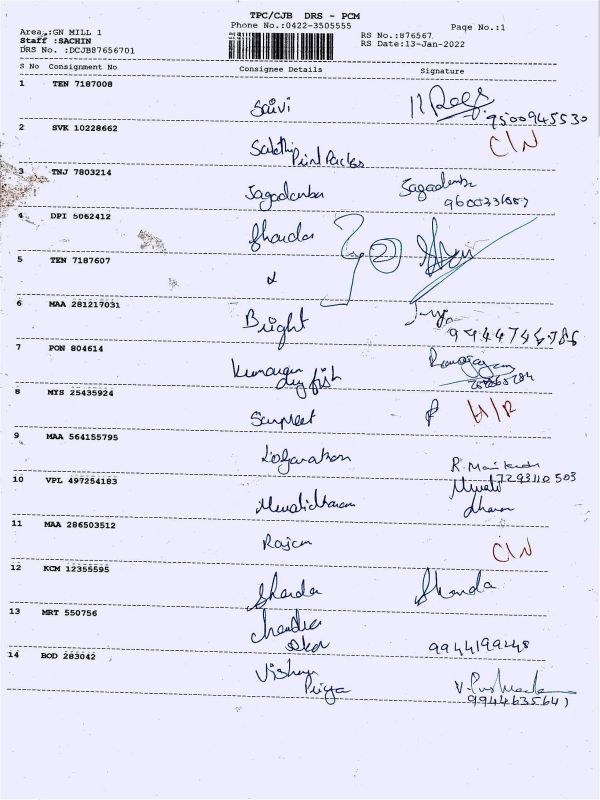 TPC/CJB DRS - PCM
Phone No.:0422-3505555
Page No.:1
Area :GN MILL 1
Staff :SACHIN
DRS No. :DCJB87656701
RS No.:876567
RS Date:13-Jan-2022
S No Consignment No Consignee Details Signature
1 TEN 7187008 Saivi
9500945530
2 SVK 10228662 C/N
Sakthi
Print Packs
3 TNJ 7803214
Jagadamba Jagadamba
4 DPI 5062412
Sharda 2
5 TEN 7187607
&
6 MAA 281217031
Bright
7 PON 804614
Kumaran
dry fish
8 MYS 25435924
Sanpreet H/R
9 MAA 564155795
Loganathan
R. Manikandan
7293110503
10 VPL 497254183
Muralidharan Murali
dharan
11 MAA 286503512
Rajan C/N
12 KCM 12355595
Sharda Sharda
13 MRT 550756
Chandra
sekar 9944199248
14 BOD 283042
Vishnu
Priya
9944635641